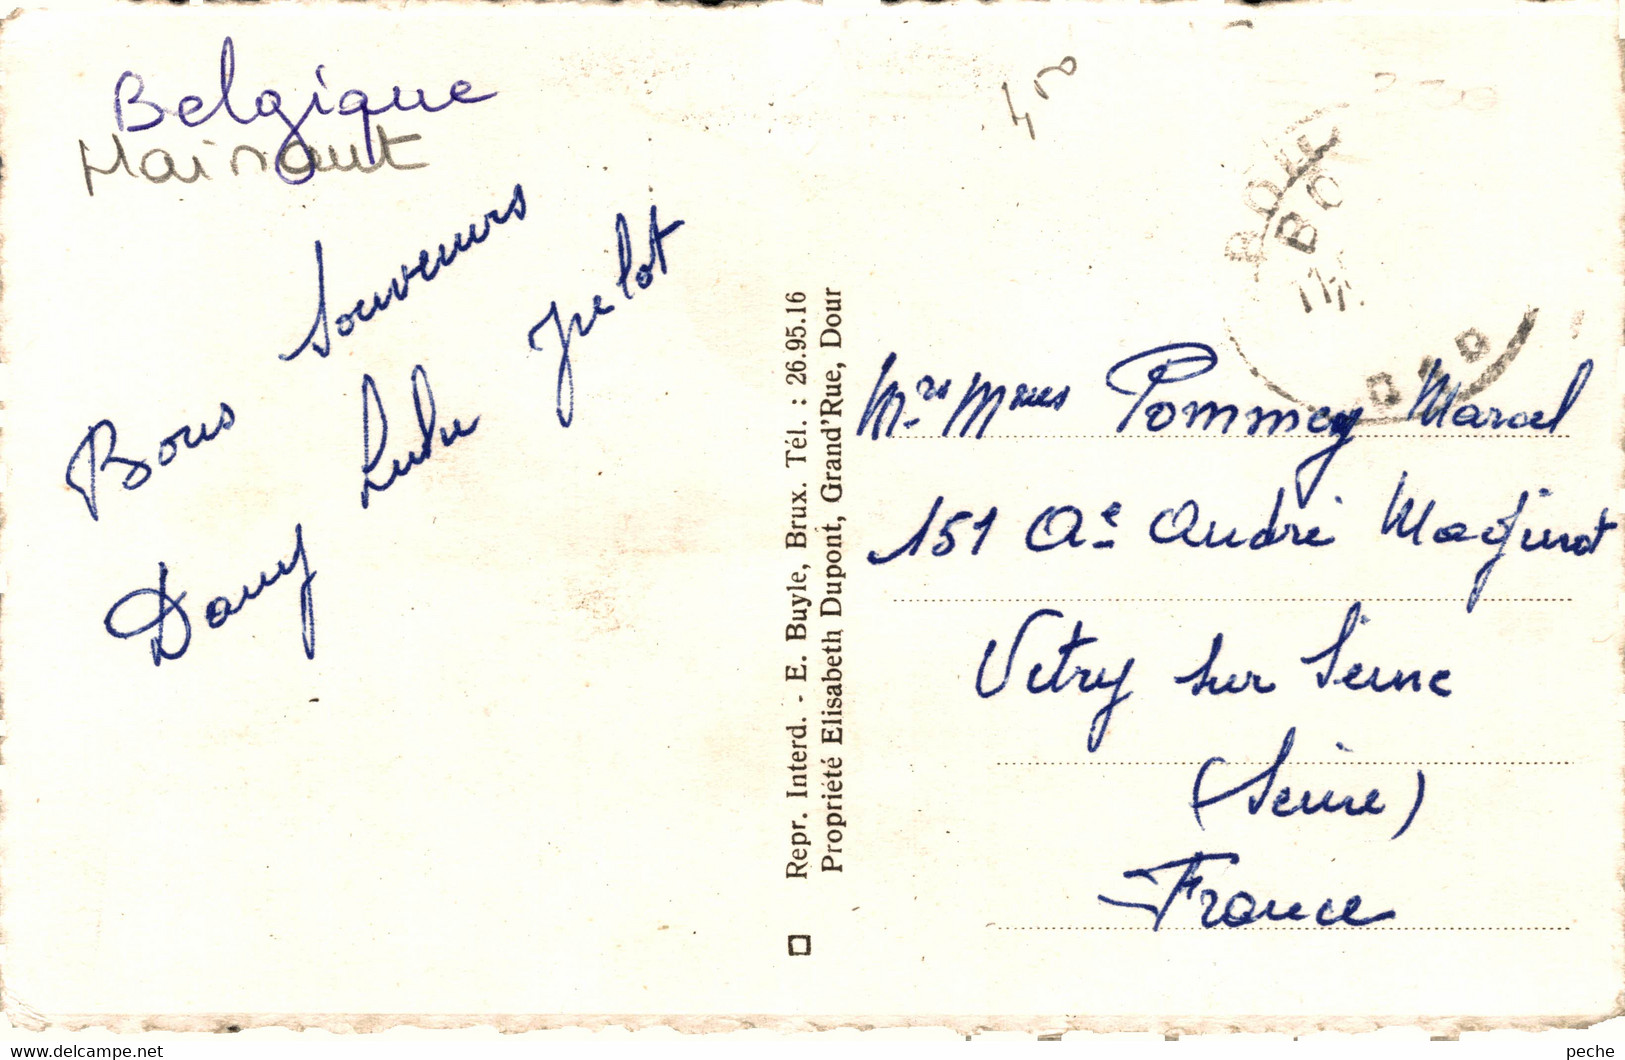 Belgique
Hainaut
Bons souvenirs
Dany Lulu
4,50
Repr. Interd. - E. Buyle, Brux. Tél. : 26.95.16
Propriété Elisabeth Dupont, Grand'Rue, Dour
Mrs Mmes Pommey Marcel
151 Ae André Maginot
Vitry sur Seine
(Seine)
France
www.delcampe.net
peche